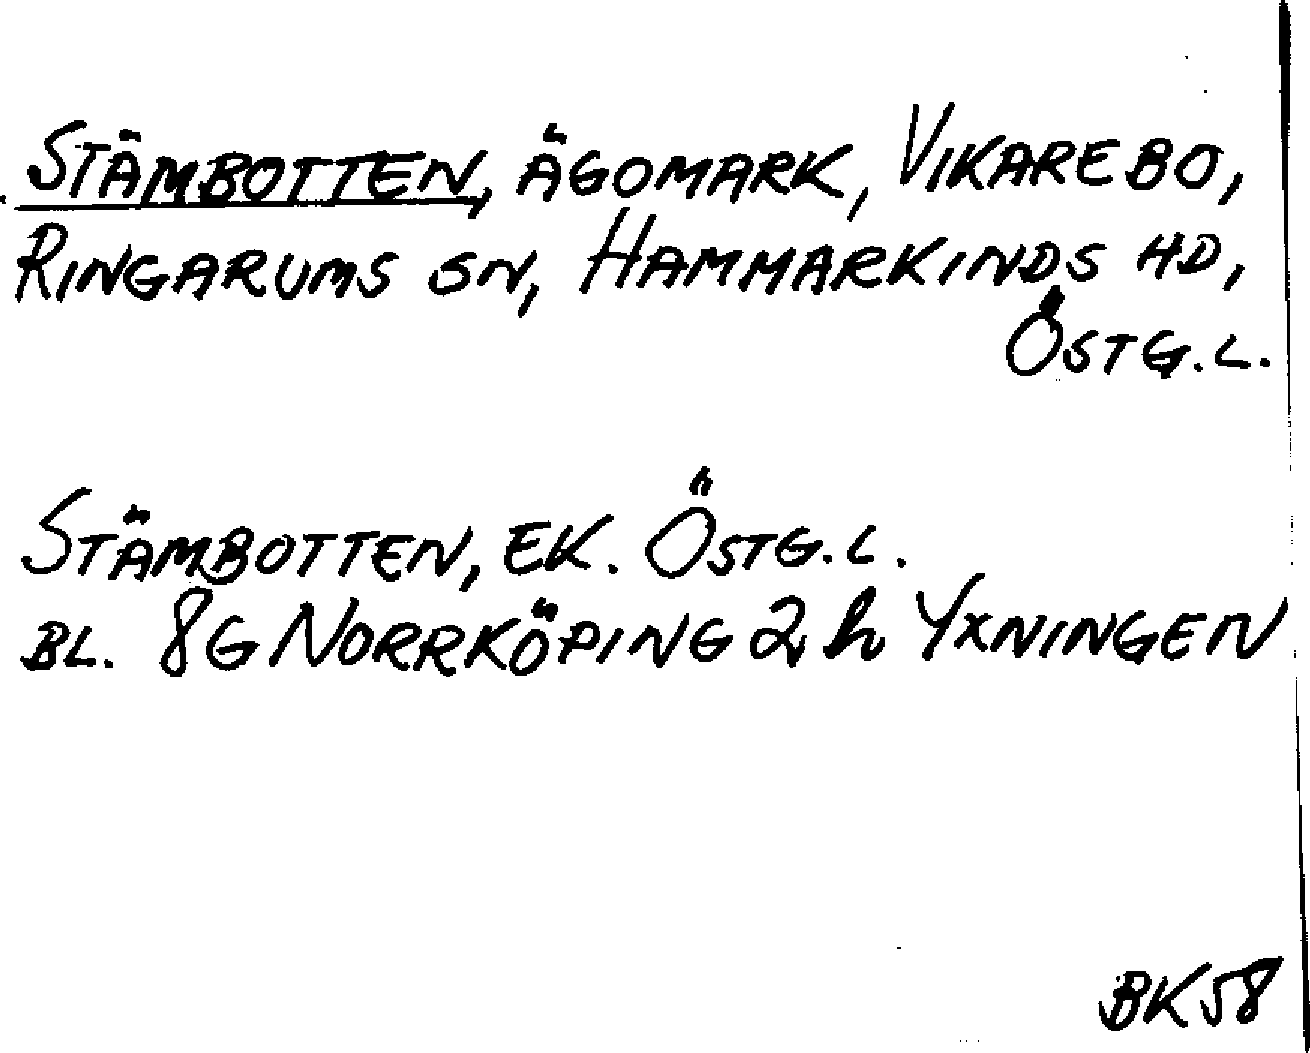 STÄMBOTTEN, ÄGOMARK, VIKAREBO,
RINGARUMS SN, HAMMARKINDS HD,
ÖSTG.L.
STÄMBOTTEN, EK. ÖSTG.L.
BL. 8G NORRKÖPING 2h YXNINGEN
BK58